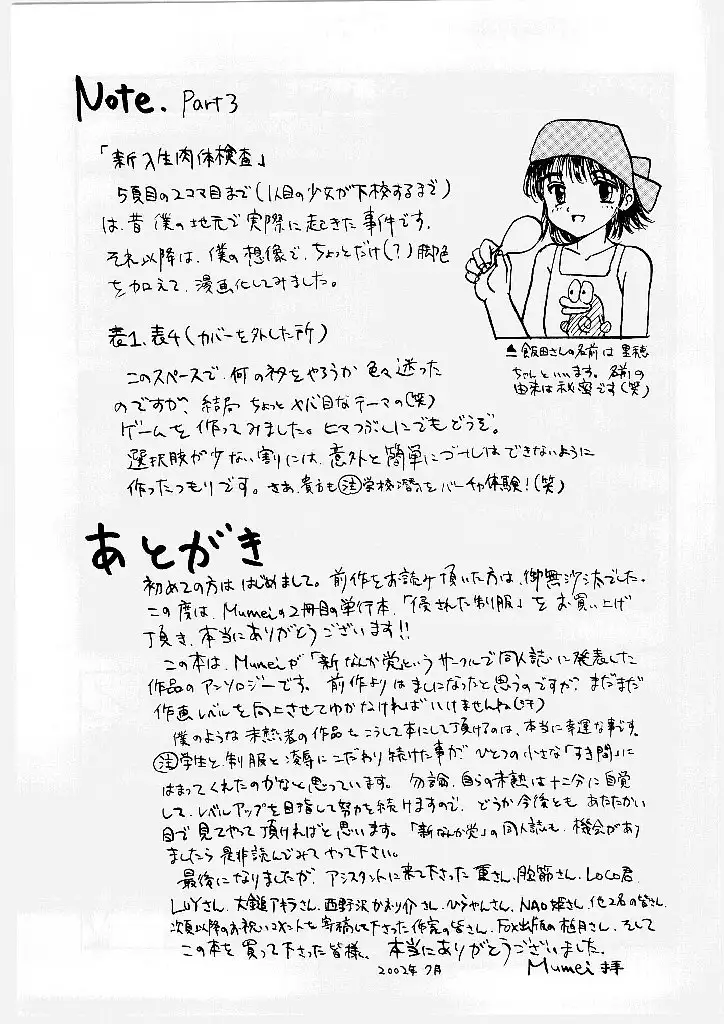 Note. Part3
「新入生肉体検査」
5頁目の2コマ目まで(1人目の少女が下校するまで)
は、昔 僕の地元で実際に起きた事件です。
それ以降は、僕の想像で、ちょっとだけ(?)脚色
を加えて、漫画化してみました。
▲飯田さんの名前は 里穂
ちゃんといいます。名前の
由来は秘密です(笑)
表1、表4(カバーを外した所)
このスペースで、何のネタをやろうか 色々迷った
のですが、結局 ちょっと ヤバ目なテーマの(笑)
ゲームを 作ってみました。ヒマつぶしにでもどうぞ。
選択肢が少ない割りには、意外と簡単にゴールは できないように
作ったつもりです。さあ、貴方も 注学校潜入を バーチャ体験!(笑)
あとがき
初めての方は はじめまして。前作をお読み頂いた方は、御無沙汰でした。
この度は、Mumeiの2冊目の単行本、「侵された制服」を お買い上げ
頂き、本当にありがとうございます!!
この本は、Mumeiが「新なんか党」というサークルで同人誌に発表した
作品の アンソロジーです。前作よりはましになったと思うのですが?まだまだ
作画レベルを向上させてゆかなければいけませんね(汗)
僕のような未熟者の作品を こうして本にして頂けるのは、本当に幸運な事です。
注学生と、制服と凌辱にこだわり続けた事が、ひとつの小さな「すき間」に
はまってくれたのかなと思っています。勿論、自らの未熟は十二分に自覚
して、レベルアップを目指して努力を続けますので、どうか今後とも あたたかい
目で見てやって頂ければと思います。「新なんか党」の同人誌も、機会があり
ましたら 是非読んでみて やって下さい。
最後になりましたが、アシスタントに来て下さった さん、 さん、LOCO君、
LUYさん、大鎚アキラさん、西野沢かおり介さん、ひろやんさん、NAO姫さん、他2名の皆さん、
次頁以降のお祝いコメントを寄稿して下さった作家の皆さん、FOX出版の さん、そして
この本を買って下さった皆様、本当にありがとうございました。
2002年7月 Mumei 拝